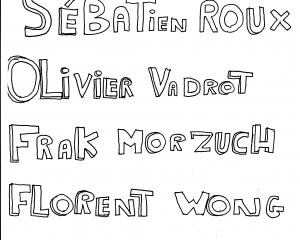 SÉBATiEN ROUX
OLiViER VADROT
FRAK MORZUCH
FLORENT WONG